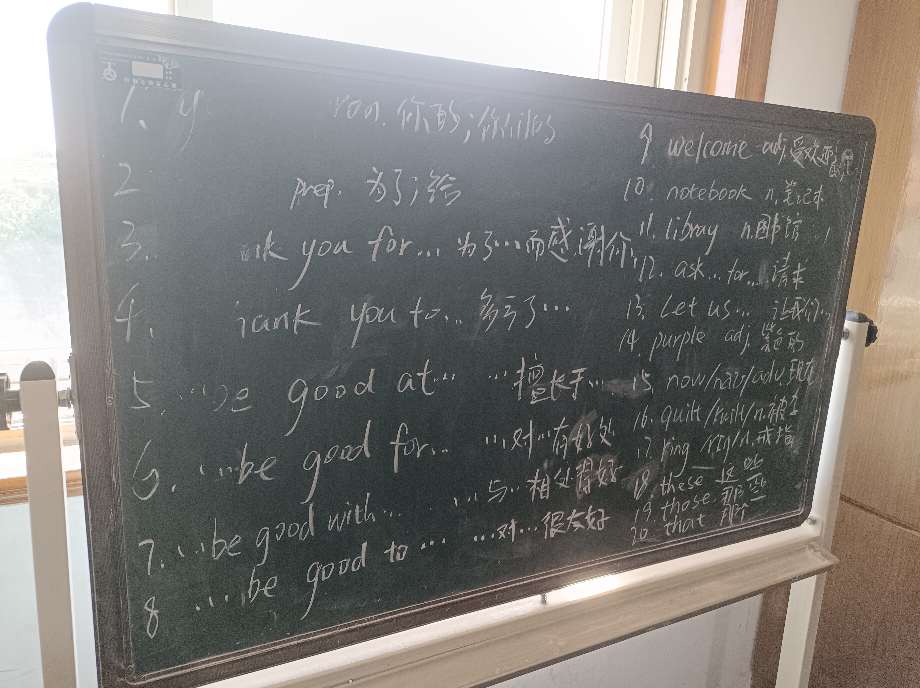 1. y pron. 你的;你们的
2. prep. 为了;给
3. nk you for... 为了...而感谢你
4. iank you to... 多亏了...
5. ...be good at... ...擅长于...
6. ...be good for... ...对...有好处
7. ...be good with... ...与...相处得好
8 ...be good to... ...对...很友好
9 welcome adj. 受欢迎的
10. notebook n. 笔记本
11. libray n. 图书馆
12. ask...for... 请求
13. Let us... 让我们...
14. purple adj. 紫色的
15 now/naʊ/adv. 现在
16. quilt /kwɪlt/n. 被子
17. ring /rɪŋ/n. 戒指
18. these 这些
19. those 那些
20. that 那个